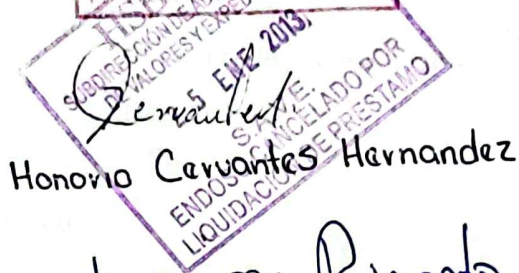 SUBDIRECCIÓN DE
DE VALORES Y EXPED
5 ENE 2013
Cervantes H.
S.A.V.E.
ENDOSO CANCELADO POR
LIQUIDACIÓN DE PRESTAMO
Honorio Cervantes Hernandez